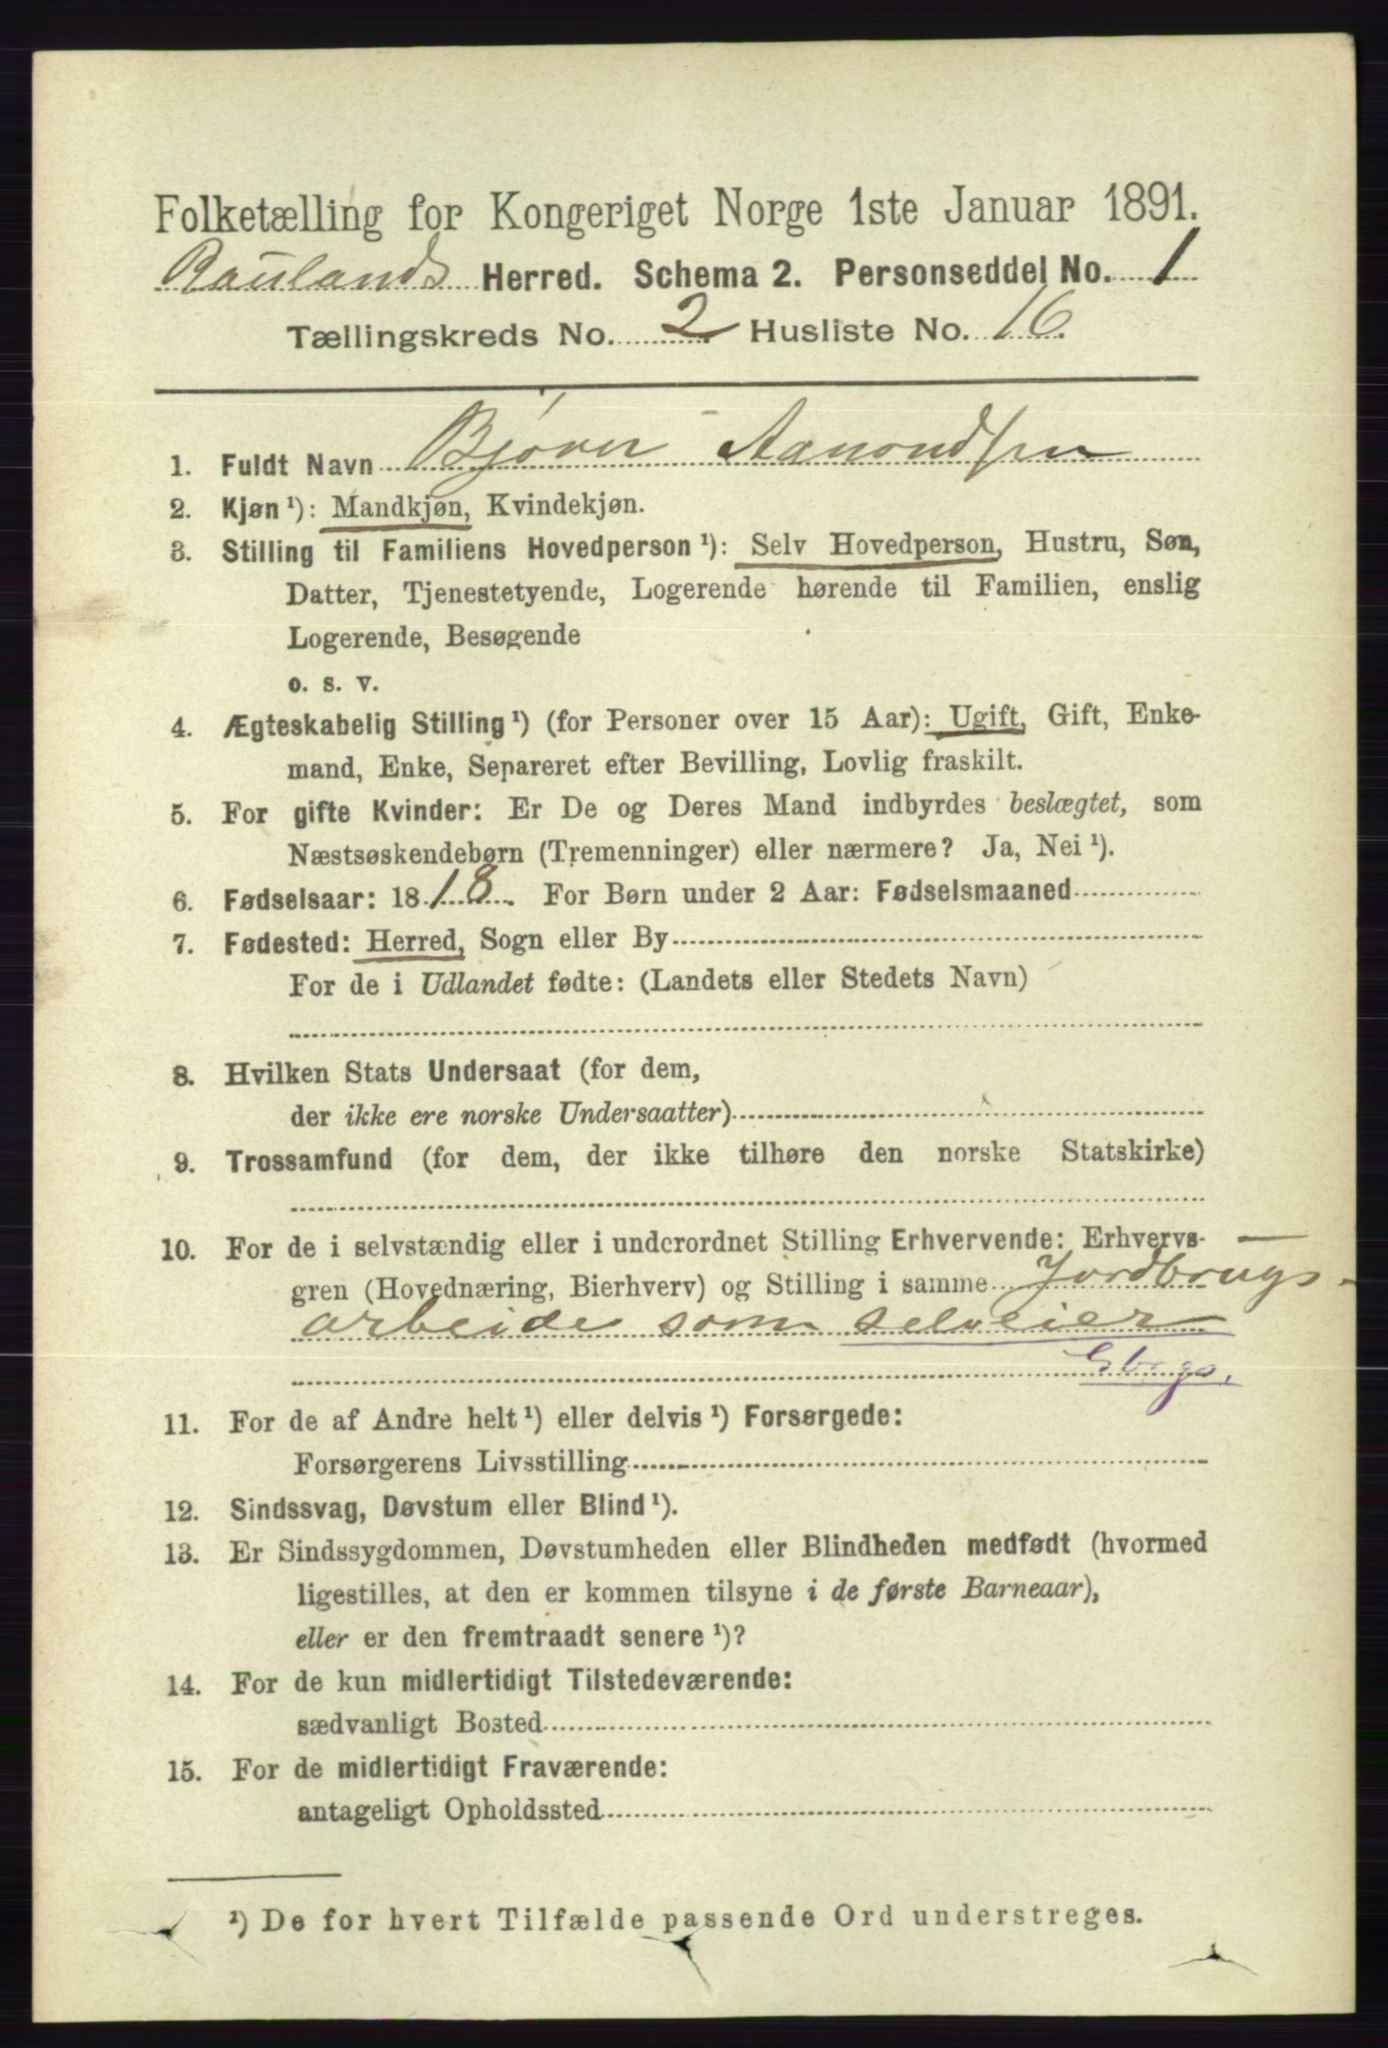 Folketælling for Kongeriget Norge 1ste Januar 1891.
Raulands Herred. Schema 2. Personseddel No. 1
Tællingskreds No. 2 Husliste No. 16.
1. Fuldt Navn Bjøver Aamondsen
2. Kjøn ¹): Mandkjøn, Kvindekjøn.
3. Stilling til Familiens Hovedperson ¹): Selv Hovedperson, Hustru, Søn,
Datter, Tjenestetyende, Logerende hørende til Familien, enslig
Logerende, Besøgende
o. s. v.
4. Ægteskabelig Stilling ¹) (for Personer over 15 Aar): Ugift, Gift, Enke-
mand, Enke, Separeret efter Bevilling, Lovlig fraskilt.
5. For gifte Kvinder: Er De og Deres Mand indbyrdes beslægtet, som
Næstsøskendebørn (Tremenninger) eller nærmere? Ja, Nei ¹).
6. Fødselsaar: 1818. For Børn under 2 Aar: Fødselsmaaned
7. Fødested: Herred, Sogn eller By
For de i Udlandet fødte: (Landets eller Stedets Navn)
8. Hvilken Stats Undersaat (for dem,
der ikke ere norske Undersaatter)
9. Trossamfund (for dem, der ikke tilhøre den norske Statskirke)
10. For de i selvstændig eller i underordnet Stilling Erhvervende: Erhvervs-
gren (Hovednæring, Bierhverv) og Stilling i samme Jordbrugs-
arbeide som selveier
Gbrgs.
11. For de af Andre helt ¹) eller delvis ¹) Forsørgede:
Forsørgerens Livsstilling
12. Sindssvag, Døvstum eller Blind ¹).
13. Er Sindssygdommen, Døvstumheden eller Blindheden medfødt (hvormed
ligestilles, at den er kommen tilsyne i de første Barneaar),
eller er den fremtraadt senere ¹)?
14. For de kun midlertidigt Tilstedeværende:
sædvanligt Bosted
15. For de midlertidigt Fraværende:
antageligt Opholdssted
¹) De for hvert Tilfælde passende Ord understreges.